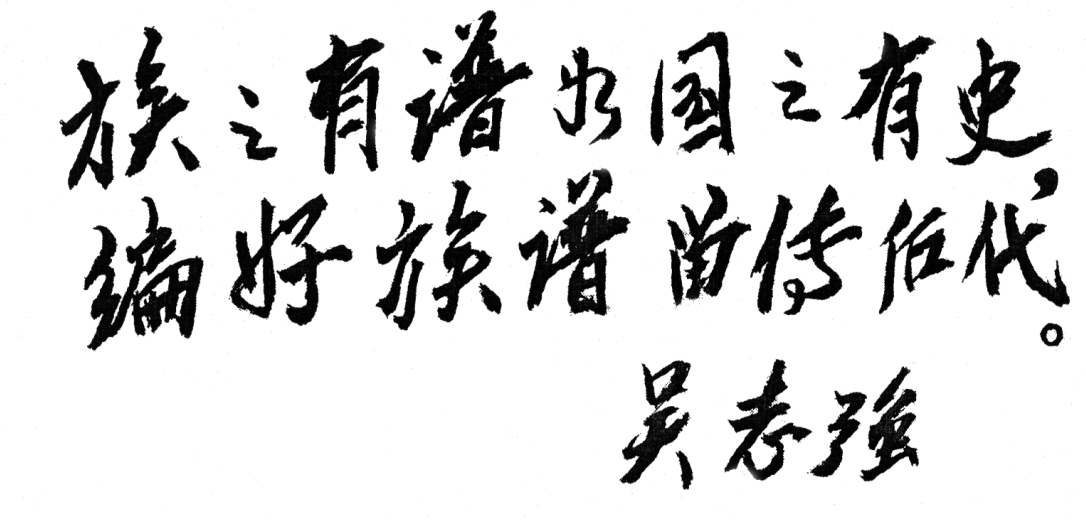 族之有谱如国之有史，
编好族谱留传后代。
吴志强